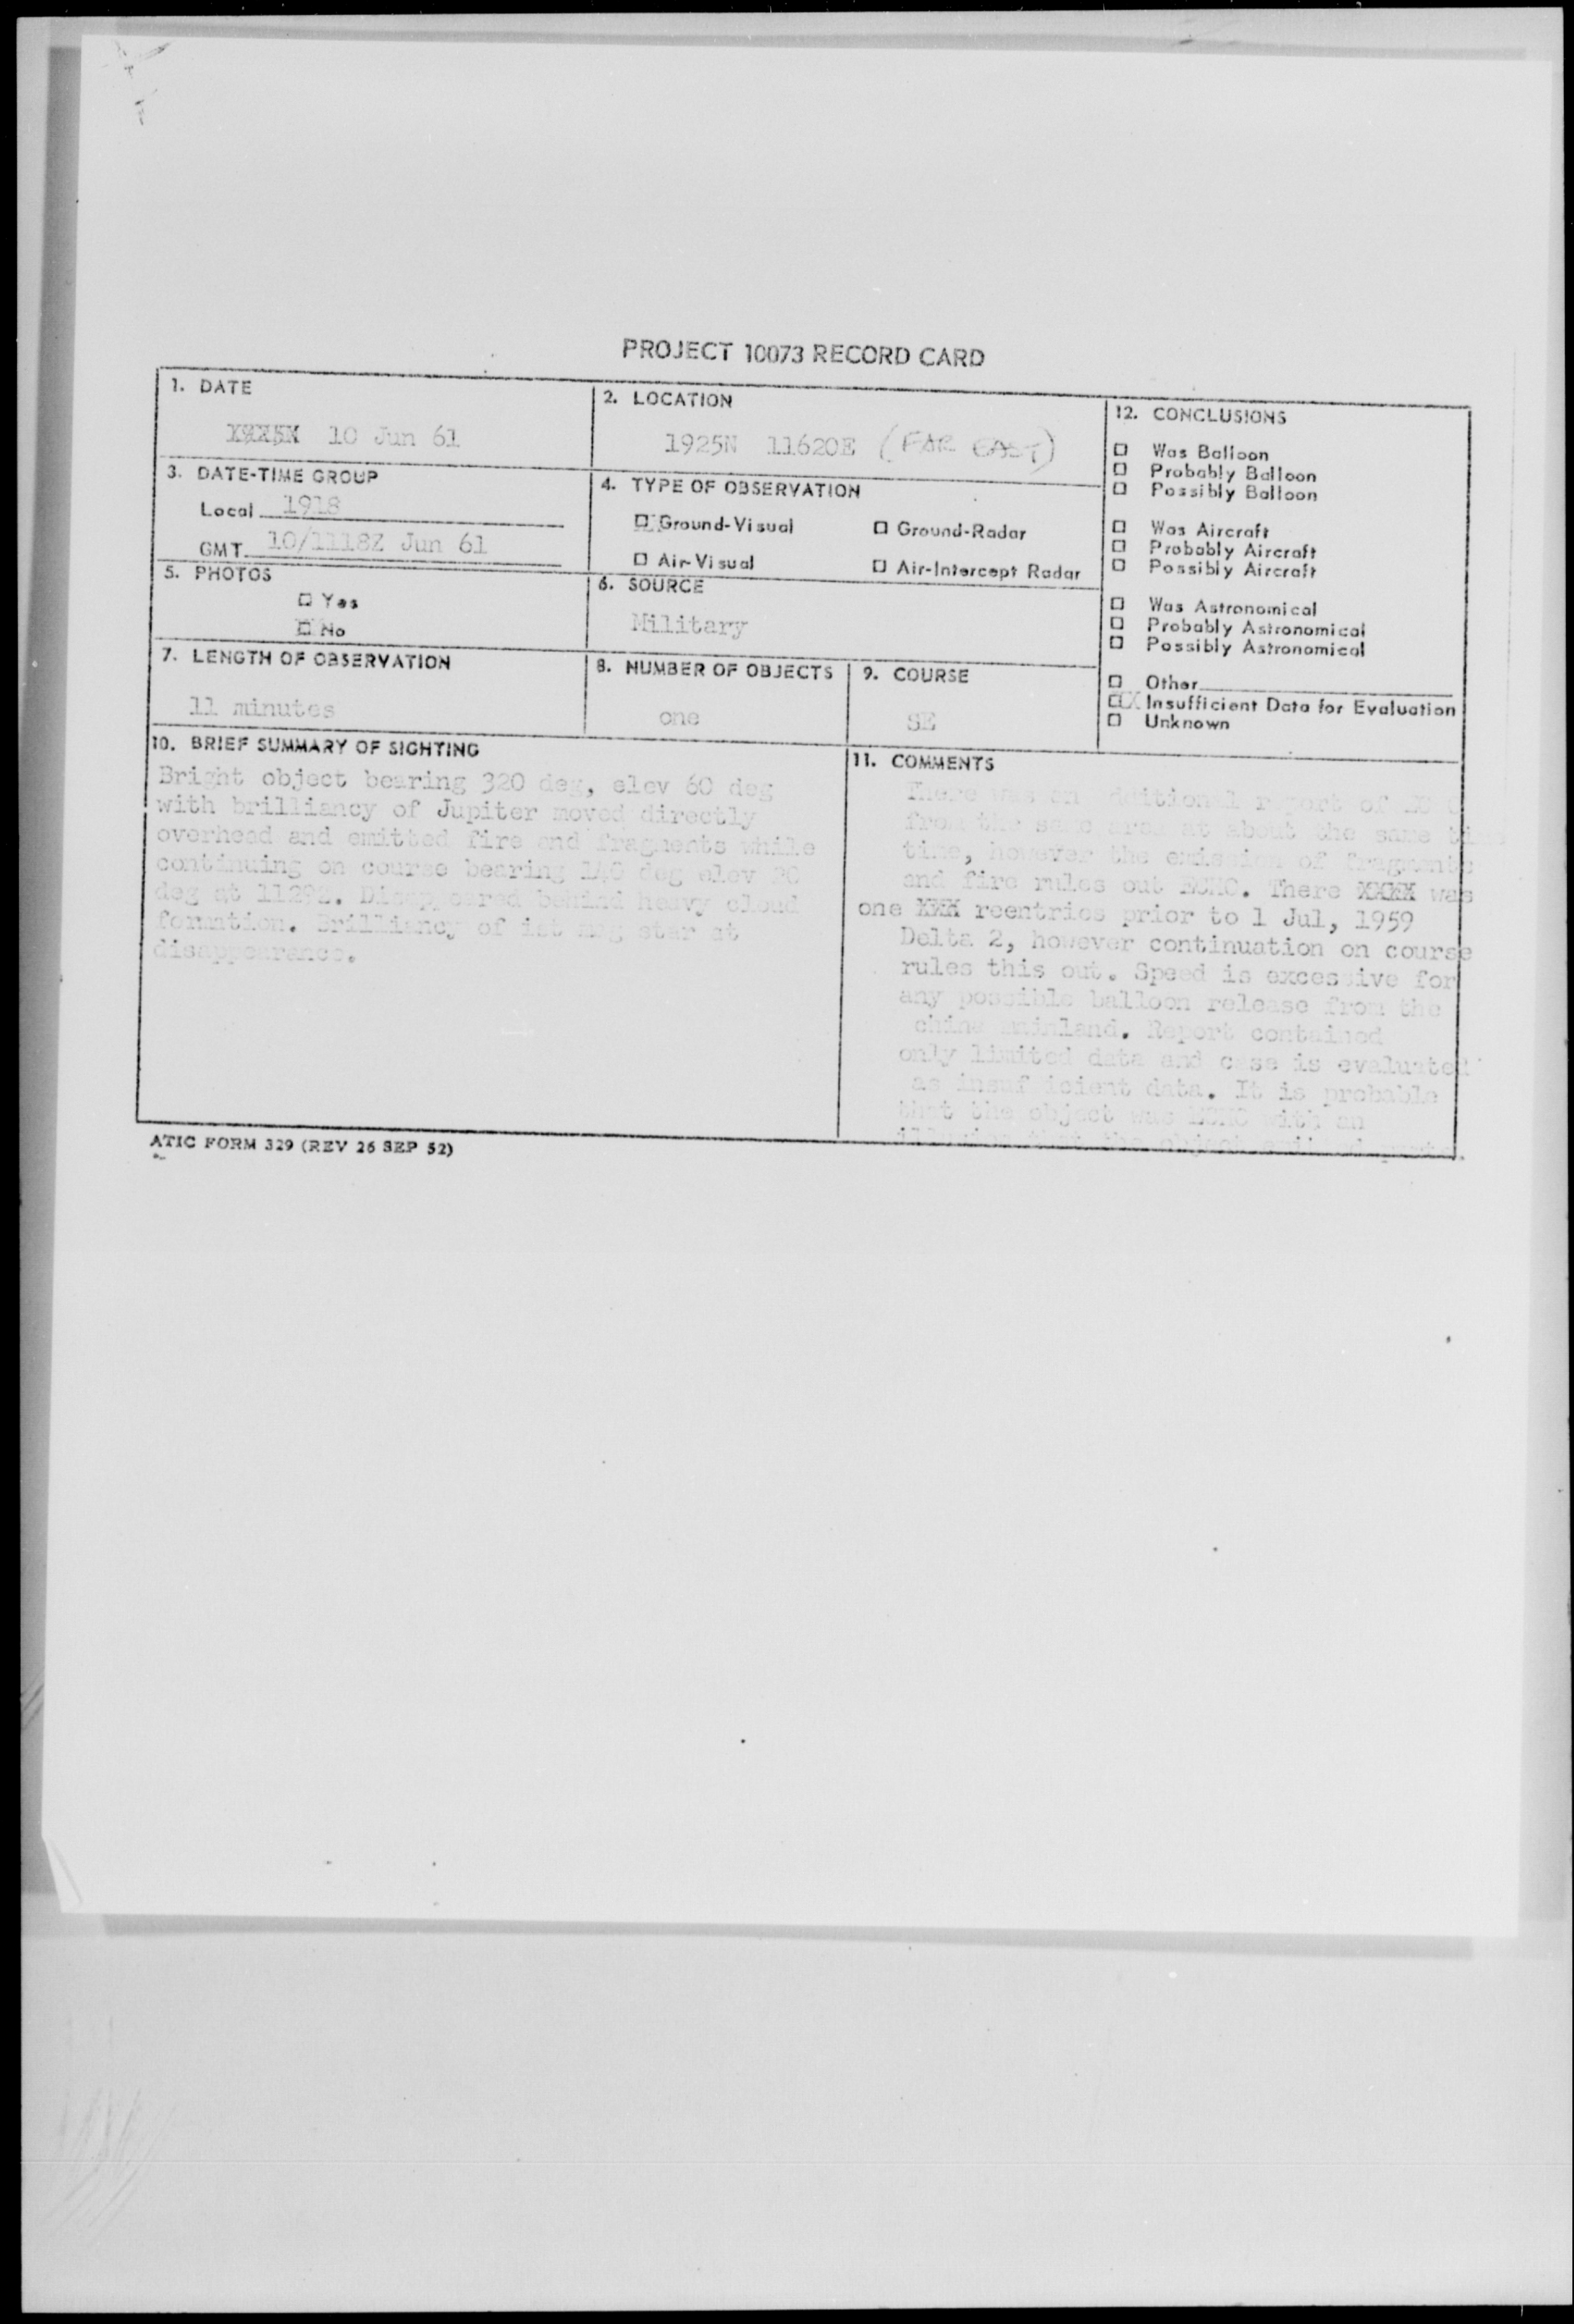 PROJECT 10073 RECORD CARD
1. DATE
10 Jun 61
2. LOCATION
1925N 11620E (FAR EAST)
3. DATE-TIME GROUP
Local 1918
GMT 10/1118Z Jun 61
4. TYPE OF OBSERVATION
Ground-Visual
Ground-Radar
Air-Visual
Air-Intercept Radar
5. PHOTOS
Yes
No
6. SOURCE
Military
7. LENGTH OF OBSERVATION
11 minutes
8. NUMBER OF OBJECTS
one
9. COURSE
SE
10. BRIEF SUMMARY OF SIGHTING
Bright object bearing 320 deg, elev 60 deg
with brilliancy of Jupiter moved directly
overhead and emitted fire and fragments while
continuing on course bearing 140 deg elev
deg at Disappeared behind heavy cloud
formation. Brilliancy of ist mag star at
disappearance.
11. COMMENTS
There was an additional report of
from the same area at about the same
time, however the emission of fragments
and fire rules out ECHO. There XXXX was
one XXX reentries prior to 1 Jul, 1959
Delta 2, however continuation on course
rules this out. Speed is excessive for
any possible balloon release from the
china mainland. Report contained
only limited data and case is evaluated
as insufficient data. It is probable
that the object was ECHO with an
illusion that the object
12. CONCLUSIONS
Was Balloon
Probably Balloon
Possibly Balloon
Was Aircraft
Probably Aircraft
Possibly Aircraft
Was Astronomical
Probably Astronomical
Possibly Astronomical
Other
X Insufficient Data for Evaluation
Unknown
ATIC FORM 329 (REV 26 SEP 52)